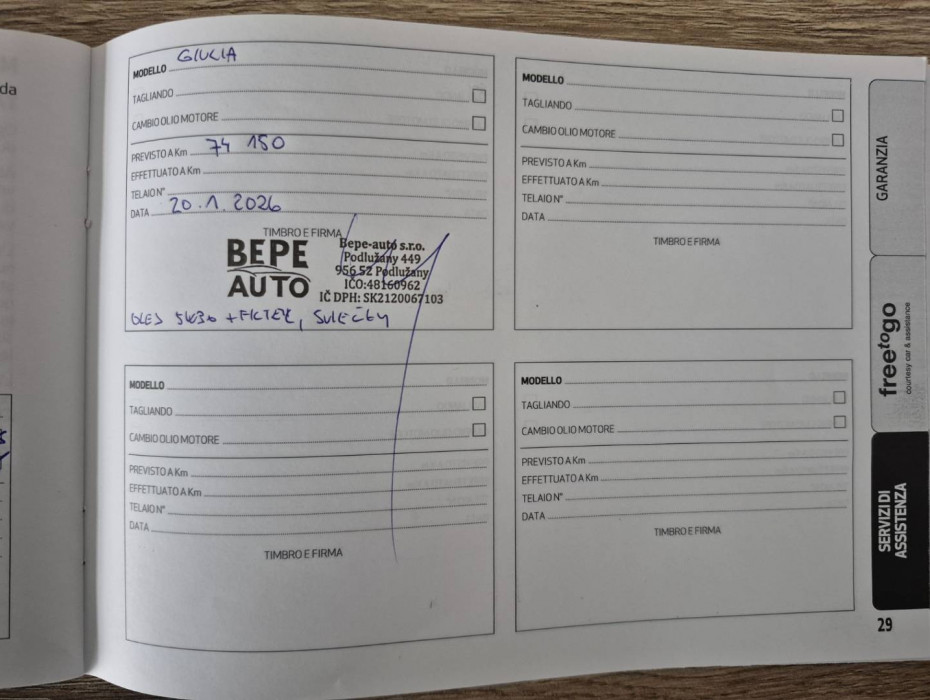 da
MODELLO GIULIA
TAGLIANDO
CAMBIO OLIO MOTORE
PREVISTO A Km 74 150
EFFETTUATO A Km
TELAIO N°
DATA 20.1.2026
TIMBRO E FIRMA
BEPE
AUTO
Bepe-auto s.r.o.
Podlužany 449
956 52 Podlužany
IČO:48160962
IČ DPH: SK2120067103
OLEJ 5W30 + FILTER, SVIEČKY
MODELLO
TAGLIANDO
CAMBIO OLIO MOTORE
PREVISTO A Km
EFFETTUATO A Km
TELAIO N°
DATA
TIMBRO E FIRMA
MODELLO
TAGLIANDO
CAMBIO OLIO MOTORE
PREVISTO A Km
EFFETTUATO A Km
TELAIO N°
DATA
TIMBRO E FIRMA
MODELLO
TAGLIANDO
CAMBIO OLIO MOTORE
PREVISTO A Km
EFFETTUATO A Km
TELAIO N°
DATA
TIMBRO E FIRMA
GARANZIA
freetogo
courtesy car & assistance
SERVIZI DI
ASSISTENZA
29